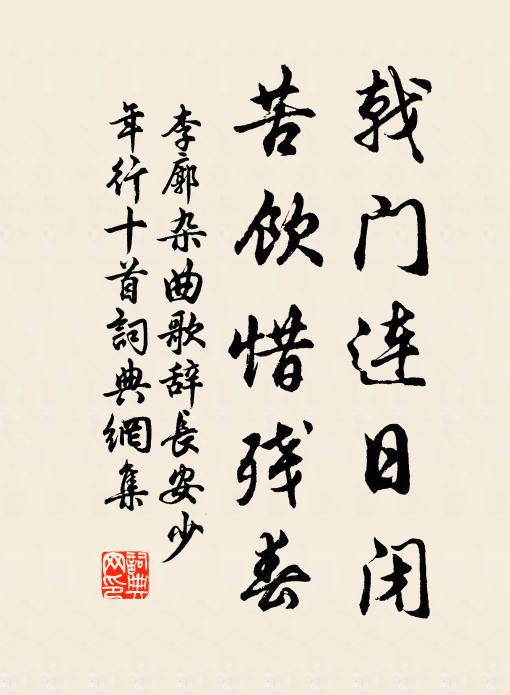 戟门连日闭
苦饮惜残春
李廓杂曲歌辞长安少
年行十首词典網集
詞典网印